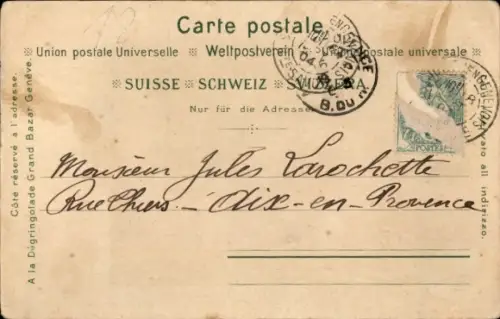 Carte postale
Union postale Universelle Weltpostverein Union postale universale
SUISSE SCHWEIZ SVIZZERA
Nur für die Adresse
Côté réservé à l'adresse.
A la Dégringolade Grand Bazar Genève.
lato all indirizzo.
04
B. DU R.
POSTES
Monsieur Jules Larochette
Rue Thiers. — Aix-en-Provence